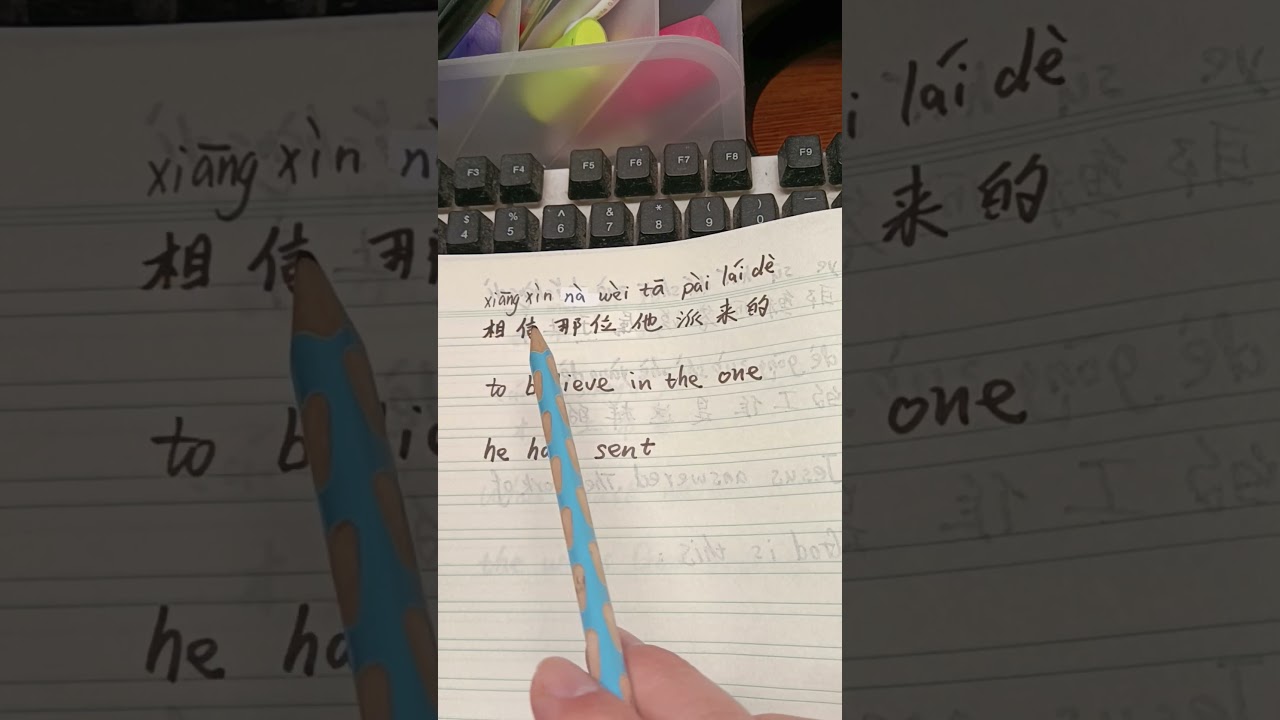 F3 F4 F5 F6 F7 F8 F9
$ % ^ & * ( ) —
4 5 6 7 8 9 0
xiāng xìn nà wèi tā pài lái dè
相信那位他派来的
to believe in the one
he ha sent